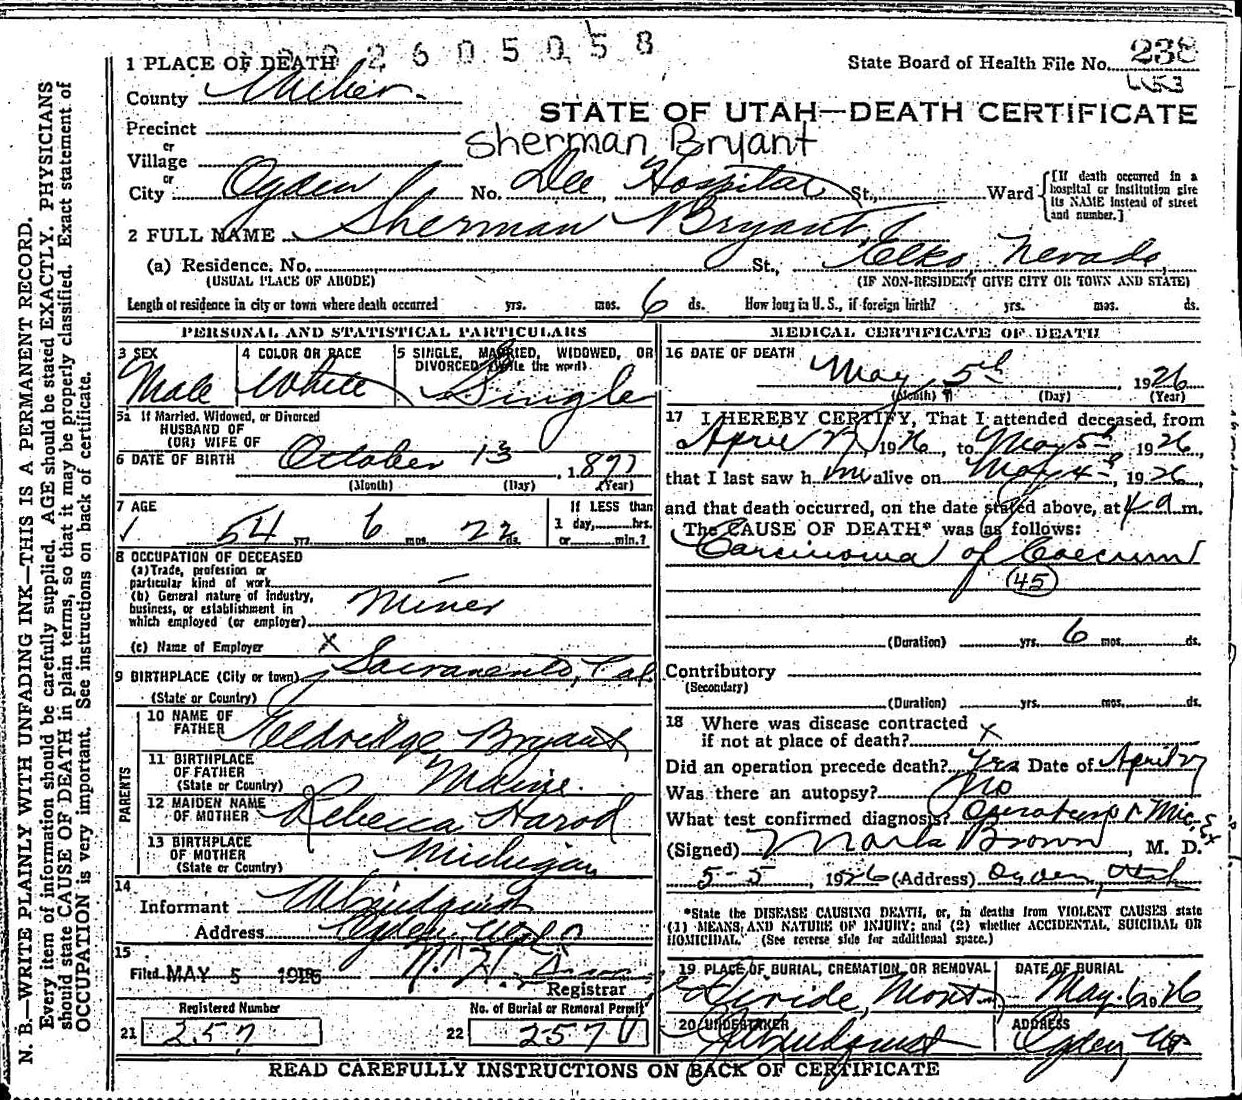 2 6 0 5 0 5 8
1 PLACE OF DEATH
State Board of Health File No. 238
County Weber
STATE OF UTAH—DEATH CERTIFICATE
Precinct
Sherman Bryant
or
Village
or
City Ogden No. Dee Hospital St., Ward [If death occurred in a hospital or institution give its NAME instead of street and number.]
2 FULL NAME Sherman Bryant
(a) Residence. No. St., Elko, Nevada,
(USUAL PLACE OF ABODE) (IF NON-RESIDENT GIVE CITY OR TOWN AND STATE)
Length of residence in city or town where death occurred yrs. mos. 6 ds. How long in U. S., if foreign birth? yrs. mos. ds.
PERSONAL AND STATISTICAL PARTICULARS
3 SEX Male
4 COLOR OR RACE White
5 SINGLE, MARRIED, WIDOWED, OR DIVORCED (Write the word). Single
5a If Married, Widowed, or Divorced
HUSBAND OF
(OR) WIFE OF
6 DATE OF BIRTH October 13, 1877
(Month) (Day) (Year)
7 AGE 54 yrs. 6 mos. 22 ds.
If LESS than
1 day, hrs.
or min.?
8 OCCUPATION OF DECEASED
(a) Trade, profession or
particular kind of work
(b) General nature of industry,
business, or establishment in
which employed (or employer) Miner
(c) Name of Employer x
9 BIRTHPLACE (City or town) Sacramento, Cal.
(State or Country)
PARENTS
10 NAME OF FATHER Eldridge Bryant
11 BIRTHPLACE OF FATHER Maine.
(State or Country)
12 MAIDEN NAME OF MOTHER Rebecca Harod
13 BIRTHPLACE OF MOTHER Michigan
(State or Country)
14
Informant Lindquist
Address Ogden Utah
15
Filed MAY 5 1926
Registrar
Registered Number
21 257
No. of Burial or Removal Permit
22 257
MEDICAL CERTIFICATE OF DEATH
16 DATE OF DEATH
May 5th, 1926
(Month) (Day) (Year)
17 I HEREBY CERTIFY, That I attended deceased, from
April 27, 1926, to May 5th 1926
that I last saw h im alive on May 4th, 1926,
and that death occurred, on the date stated above, at 4 a m.
The CAUSE OF DEATH* was as follows:
Carcinoma of Coecum
(45)
(Duration) yrs. 6 mos. ds.
Contributory
(Secondary)
(Duration) yrs. mos. ds.
18 Where was disease contracted
if not at place of death? x
Did an operation precede death? Yes Date of April 27
Was there an autopsy? No
What test confirmed diagnosis? Operation & Mic. Ex
(Signed) Brown, M. D.
5-5, 1926 (Address) Ogden, Utah
*State the DISEASE CAUSING DEATH, or, in deaths from VIOLENT CAUSES state
(1) MEANS AND NATURE OF INJURY; and (2) whether ACCIDENTAL, SUICIDAL OR
HOMICIDAL. (See reverse side for additional space.)
19 PLACE OF BURIAL, CREMATION, OR REMOVAL Divide, Mont.
DATE OF BURIAL May. 6. 1926
20 UNDERTAKER Lindquist
ADDRESS Ogden, Ut
READ CAREFULLY INSTRUCTIONS ON BACK OF CERTIFICATE
N. B.—WRITE PLAINLY WITH UNFADING INK—THIS IS A PERMANENT RECORD.
Every item of information should be carefully supplied. AGE should be stated EXACTLY. PHYSICIANS
should state CAUSE OF DEATH in plain terms, so that it may be properly classified. Exact statement of
OCCUPATION is very important. See instructions on back of certificate.